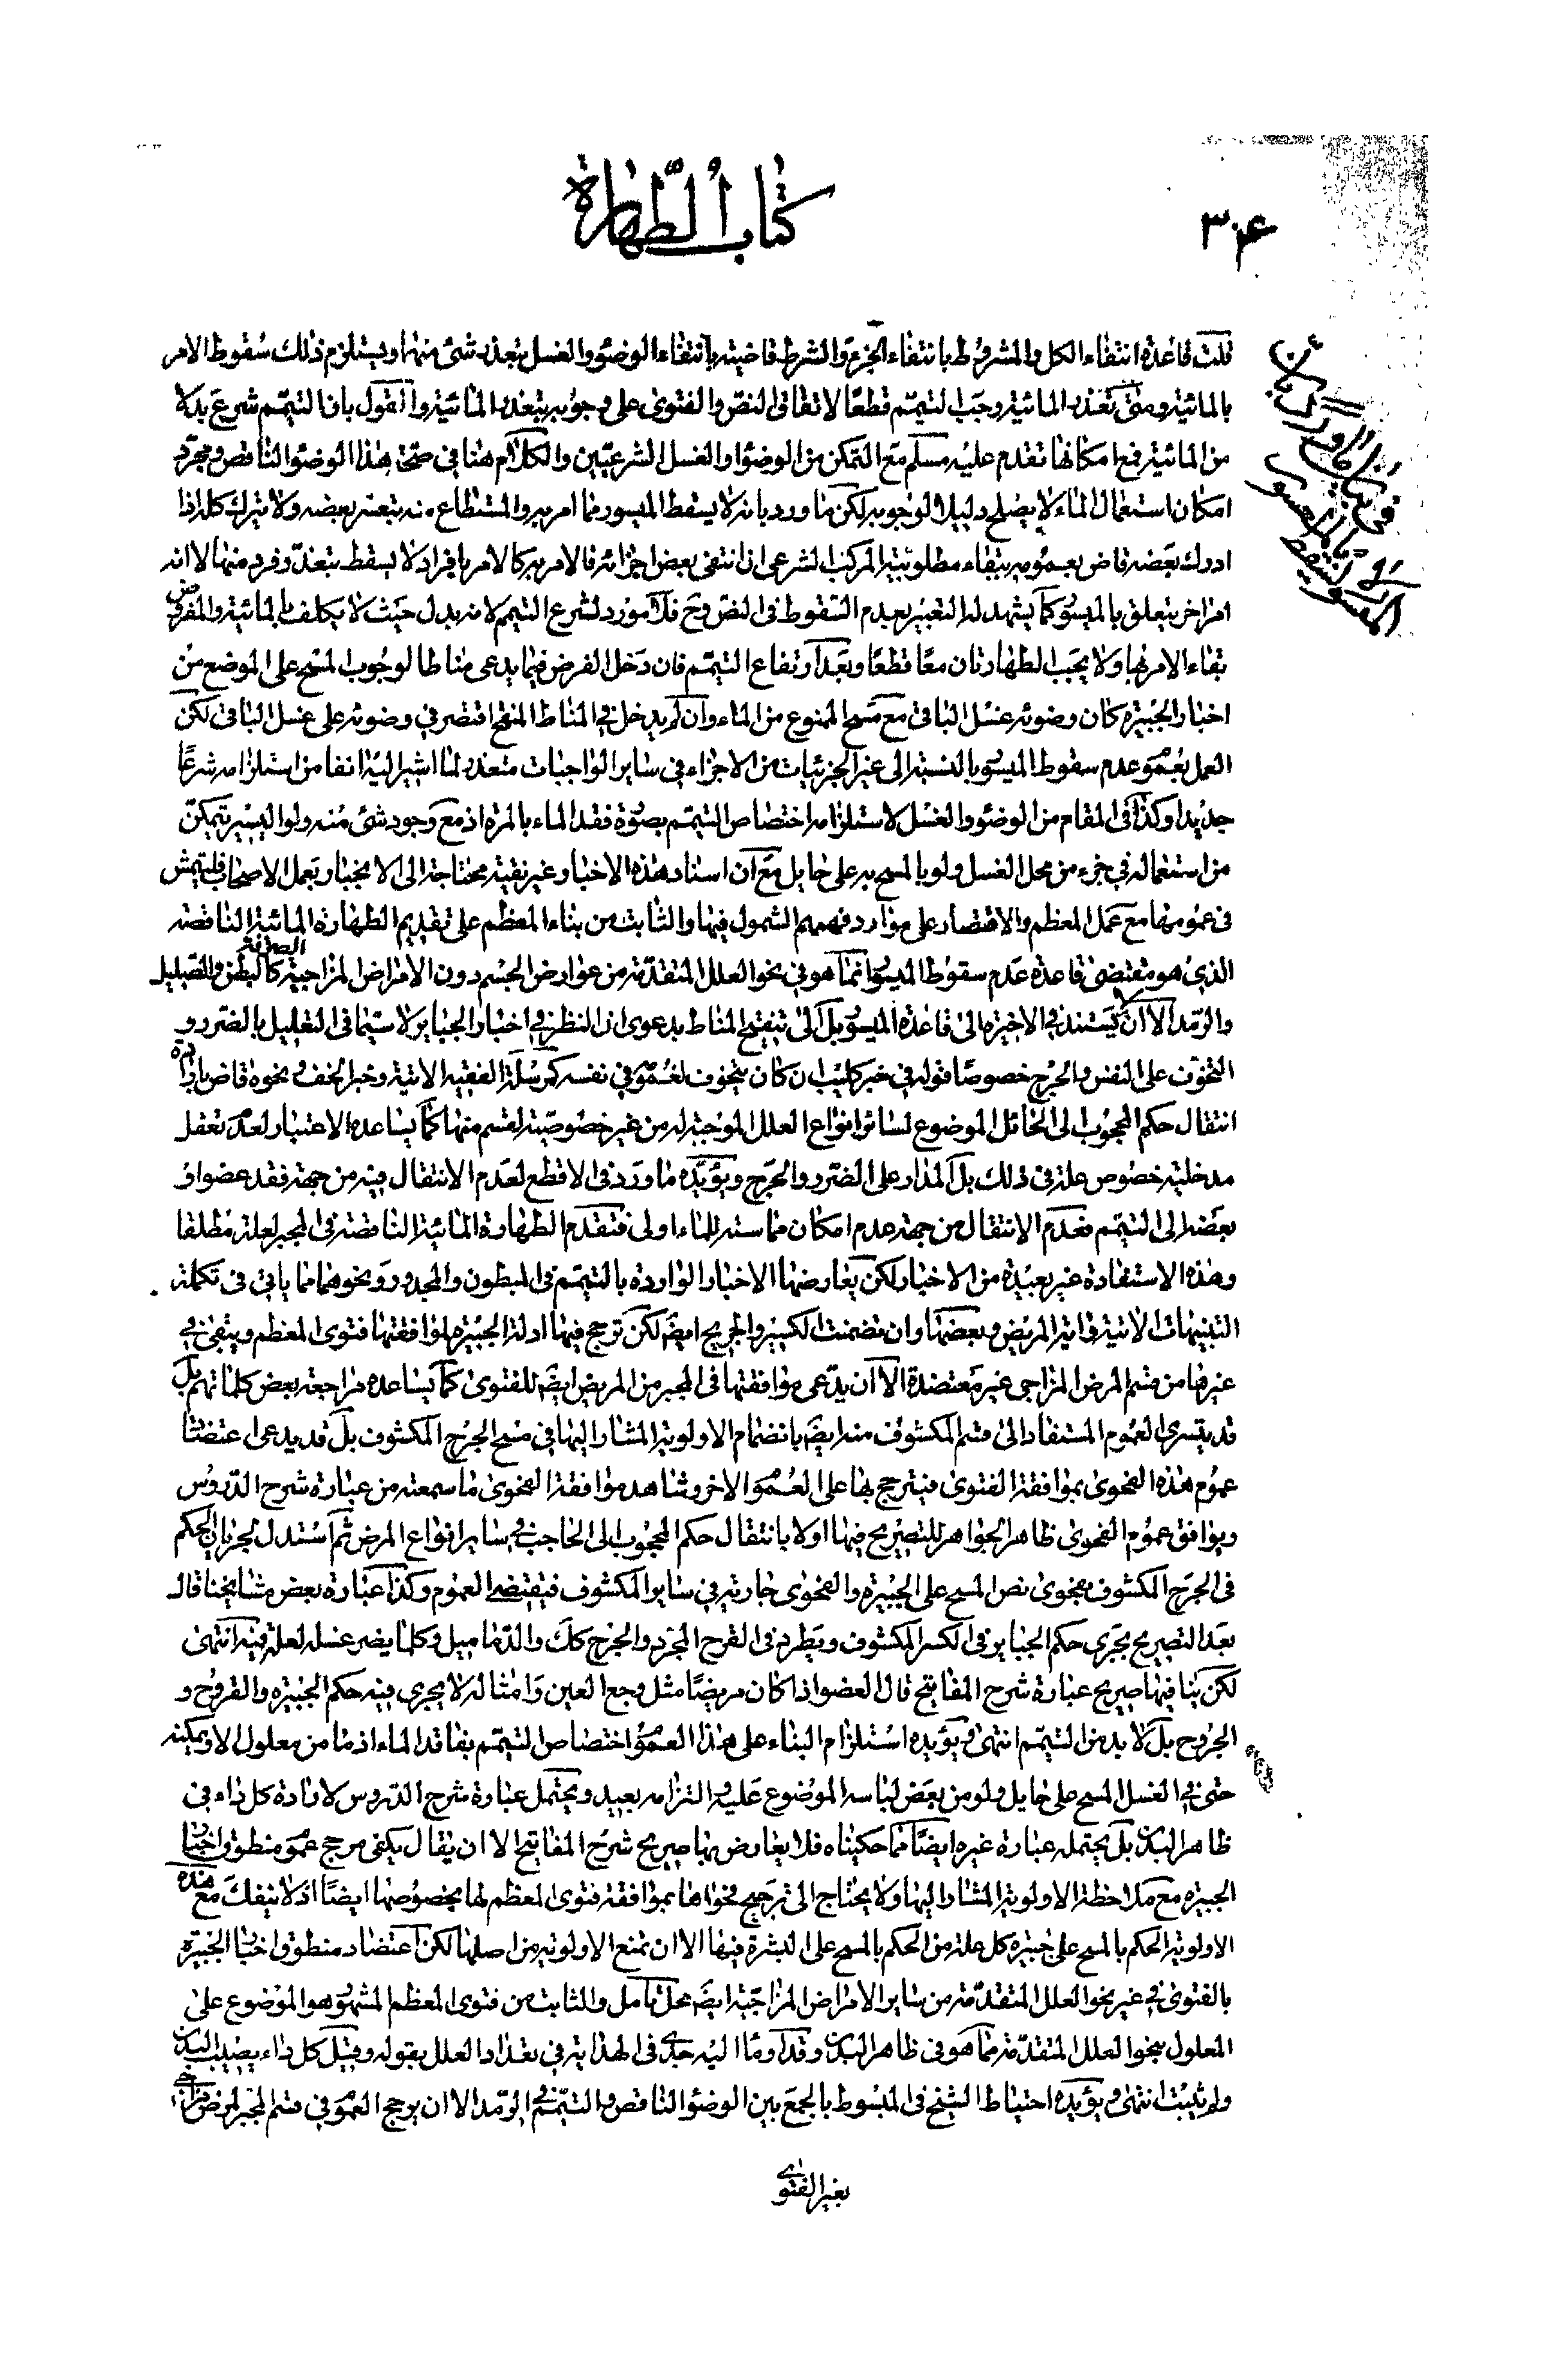 ٣٠٤
كتاب الطهارة
قلت قاعدة انتفاء الكل والمشروط بانتفاء الجزء والشرط قاضية بانتفاء الوضوء والغسل بتعذر شئ منها ويستلزم ذلك سقوط الامر
بالمائية ومتى تعذر المائية وجب التيمم قطعًا لاتفاق النص والفتوى على وجوبه بتعذر المائية والقول بان التيمم شرع بدلا
من المائية فمع امكانها تقدم عليه مسلم مع التمكن من الوضوء والغسل الشرعيين والكلام هنا في صحة هذا الوضوء الناقص ومجرد
امكان استعمال الماء لا يصلح دليلا لوجوبه لكن ما ورد بانه لا يسقط الميسور مما امر به والمستطاع منه بتعسر بعضه ولا يترك كله اذا
ادرك بعضه قاض بعمومه ببقاء مطلوبية المركب الشرعى ان انتفى بعض اجزائه فالامر به كالامر بافراد لا يسقط بتعذر فرد منها لا انه
امر اخر يتعلق بالميسور كما يشهد له التعبير بعدم السقوط في النص وح فلا مورد لشرع التيمم لانه بدل حيث لا يكلف بالمائية والمفروض
بقاء الامر بها ولا يجب الطهارتان معًا قطعًا وبعد ارتفاع التيمم فان دخل الفرض فيما يدعى مناطا لوجوب المسح على الموضع من
اخبار الجبيرة كان وضوئه غسل الباقى مع مسح الممنوع من الماء وان لم يدخل في المناط المنقح اقتصر في وضوئه على غسل الباقى لكن
العمل بعموم عدم سقوط الميسور بالنسبة الى غير الجزئيات من الاجزاء في ساير الواجبات متعذر لما اشير اليه انفا من استلزامه شرعًا
جديدا وكذا في المقام من الوضوء والغسل لاستلزامه اختصاص التيمم بصورة فقد الماء بالمرة اذ مع وجود شئ منه ولو اليسير يتمكن
من استعماله في جزء من محل الغسل ولو بالمسح به على حايل مع ان اسناد هذه الاخبار غير نقية محتاجة الى الانجبار بعمل الاصحاب فليتمش
في عمومها مع عمل المعظم والاقتصار على موارد فهمهم الشمول فيها والثابت من بناء المعظم على تقديم الطهارة المائية الناقصة
الذي هو مقتضى قاعدة عدم سقوط الميسور انما هو في نحو العلل المتقدمة من عوارض الجسم دون الامراض المزاجية الصرفة كالبطن والتصليل
والرمد الا ان يستند في الاخيرة لا الى قاعدة الميسور بل الى تنقيح المناط بدعوى ان النظر في اخبار الجباير لا سيما في التعليل بالضرر و
التخوف على النفس والحرج خصوصًا قوله في خبر كليب ان كان يتخوف لعمومه في نفسه كمرسلة الفقيه الاتية وخبر الخف ونحوه قاض بارادة
انتقال حكم المحجوب الى الحائل الموضوع لسائر انواع العلل الموجبة له من غير خصوصية لقسم منها كما يساعده الاعتبار لعدم تعقل
مدخلية خصوص علة في ذلك بل المدار على الضرر والحرج ويؤيده ما ورد في الاقطع لعدم الانتقال فيه من جهة فقد عضو او
بعضه الى التيمم فعدم الانتقال من جهة عدم امكان مماسته للماء اولى فتقدم الطهارة المائية الناقصة في المجبر لعلة مطلقا
وهذه الاستفادة غير بعيدة من الاخبار لكن يعارضها الاخبار الواردة بالتيمم في المبطون والمجدور ونحوهما مما ياتى في تكملة
التنبيهات الاتية في اية المريض وبعضها وان تضمنت الكسير والجريح ايضًا لكن ترجح فيها ادلة الجبيرة لموافقتها فتوى المعظم ويبقى في
غيرها من قسم المرض المزاجى غير معتضدة الا ان يدعى موافقتها في المجبر من المريض ايضًا للفتوى كما يساعده مراجعة بعض كلماتهم بل
قد يسرى العموم المستفاد الى قسم المكشوف منه ايضًا بانضمام الاولوية المشار اليها في مسح الجرح المكشوف بل قد يدعى اعتضاد
عموم هذه الفحوى بموافقة الفتوى فيترجح بها على العموم الاخر وشاهد موافقة الفحوى ما سمعته من عبارة شرح الدروس
ويوافق عموم الفحوى ظاهر الجواهر للتصريح فيها اولا بانتقال حكم المحجوب الى الحاجب في ساير انواع المرض ثم استدل لجريان الحكم
في الجرح المكشوف بفحوى نص المسح على الجبيرة والفحوى جارية في ساير المكشوف فيقتضى العموم وكذا عبارة بعض مشايخنا قال
بعد التصريح بجرى حكم الجباير في الكسر المكشوف ويطرد في القرح المجرد والجرح كك والدماميل وكلما يضر غسله لعلة فيه انتهى
لكن ينافيها صريح عبارة شرح المفاتيح قال العضو اذا كان مريضًا مثل وجع العين وامثاله لا يجرى فيه حكم الجبيرة والقروح و
الجروح بل لا بد من التيمم انتهى ويؤيده استلزام البناء على هذا العموم اختصاص التيمم بفاقد الماء اذ ما من معلول الا ويمكنه
حتى في الغسل المسح على حايل ولو من بعض لباسه الموضوع عليه والتزامه بعيد ويحتمل عبارة شرح الدروس لارادة كل داء في
ظاهر البدن بل يحتمله عبارة غيره ايضًا مما حكيناه فلا يعارض بها صريح شرح المفاتيح الا ان يقال يكفى مرجح عموم منطوق اخبار
الجبيرة مع ملاحظة الاولوية المشار اليها ولا يحتاج الى ترجيح فحواها بموافقة فتوى المعظم لها بخصوصها ايضًا اذ لا ينفك مع هذه
الاولوية الحكم بالمسح على جبيرة كل علة من الحكم بالمسح على البشرة فيها الا ان تمنع الاولوية من اصلها لكن اعتضاد منطوق اخبار الجبيرة
بالفتوى في غير نحو العلل المتقدمة من ساير الامراض المزاجية ايضًا محل تامل والثابت من فتوى المعظم المشهور هو الموضوع على
المعلول بنحو العلل المتقدمة مما هو في ظاهر البدن وقد اومًا اليه جدى في الهداية في تعداد العلل بقوله وقيل كل داء يصيب البدن
ولم يثبت انتهى ويؤيده احتياط الشيخ في المبسوط بالجمع بين الوضوء الناقص والتيمم في الرمد الا ان يرجح العموم في قسم المجبر لمرض مزاجى
بغير الفتوى